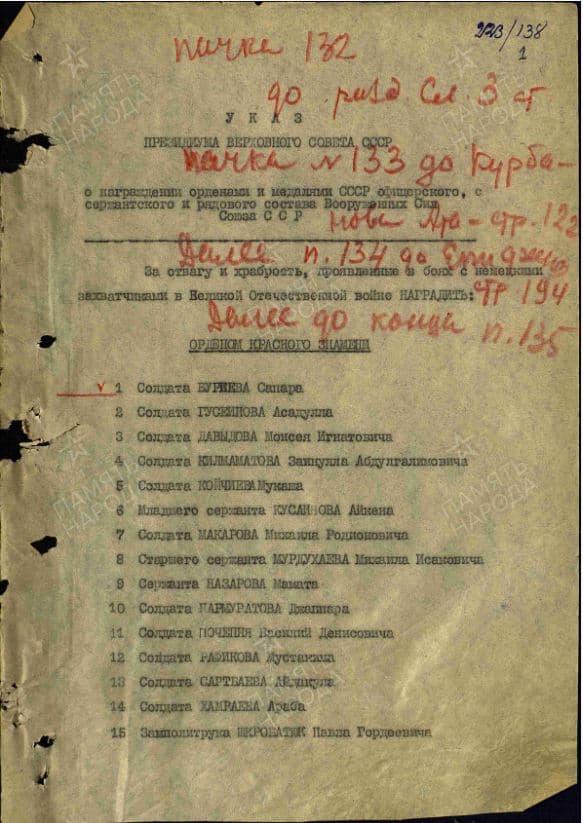 223/138
1
пачка 132
до разд. Сл. 3 ст.
У К А З
ПРЕЗИДИУМА ВЕРХОВНОГО СОВЕТА СССР
пачка N 133 до Курба-
о награждении орденами и медалями СССР офицерского, с
сержантского и рядового состава Вооруженных Сил
Союза С С Р
нова Ата - стр. 122
Далее п. 134 до
За отвагу и храбрость, проявленные в боях с немецкими
захватчиками в Великой Отечественной войне НАГРАДИТЬ:
стр 194
Далее до конца п. 135
ОРДЕНОМ КРАСНОГО ЗНАМЕНИ
v 1 Солдата БУРИЕВА Сапара
2 Солдата ГУСЕИНОВА Асадулла
3 Солдата ДАВЫДОВА Моисея Игнатовича
4 Солдата КИЛМАМАТОВА Заицулла Абдулгалимовича
5 Солдата КОЙЧИЕВА Мукаша
6 Младшего сержанта КУСАИНОВА Айкена
7 Солдата МАКАРОВА Михаила Родионовича
8 Старшего сержанта МУРДУХАЕВА Михаила Исаковича
9 Сержанта НАЗАРОВА Мамата
10 Солдата ПАРМУРАТОВА Джаппара
11 Солдата ПОЧЕПНЯ Василий Денисовича
12 Солдата РАФИКОВА Мустакима
13 Солдата САРТБАЕВА Айдакула
14 Солдата ХАМРАЕВА Араба
15 Замполитрука ШКРОБАТЮК Павла Гордеевича
ПАМЯТЬ НАРОДА